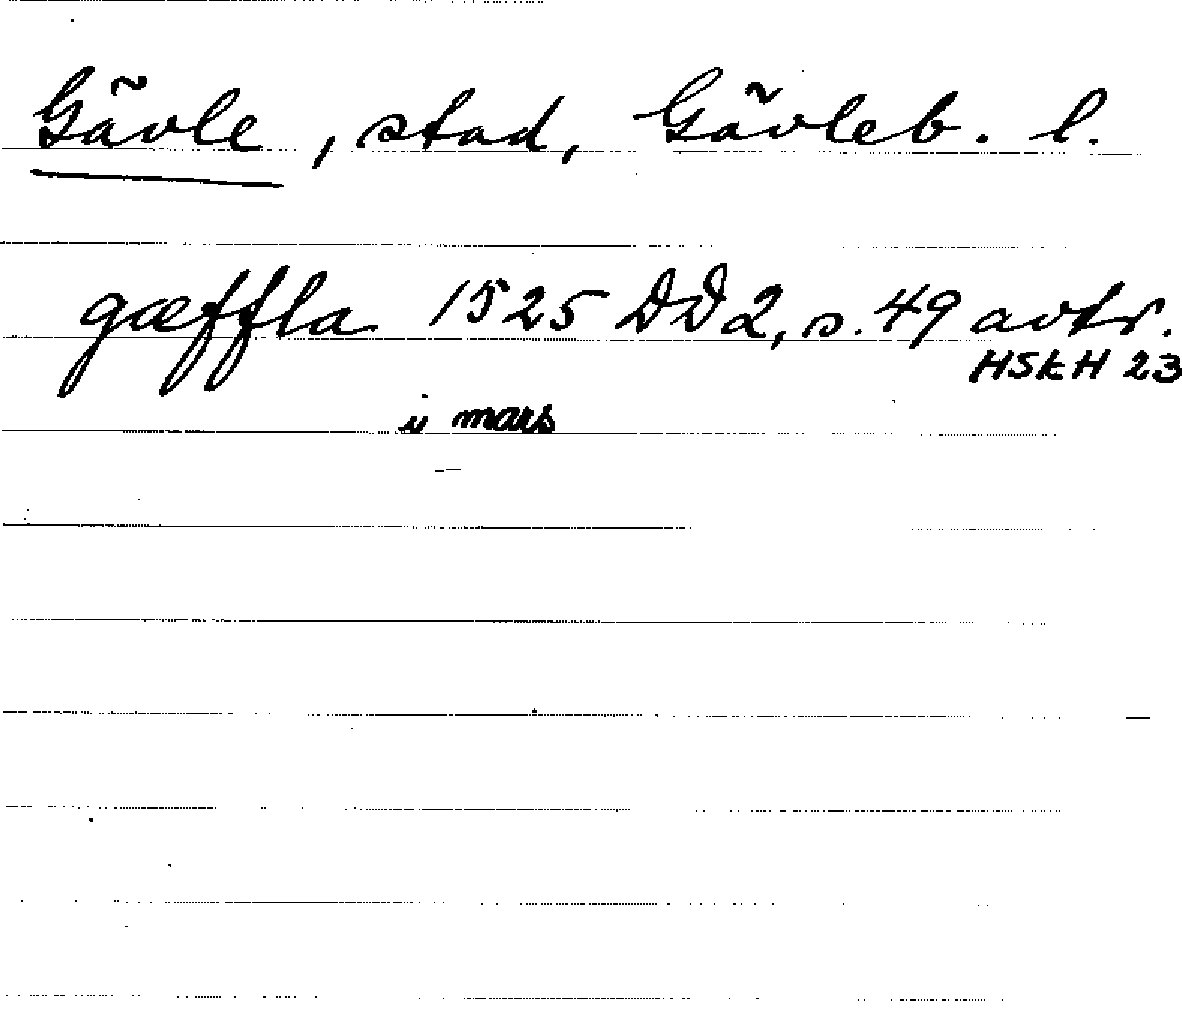 Gävle, stad, Gävleb. l.
gæffla 1525 DD2, s. 49 avtr.
HSkH 23
i mars